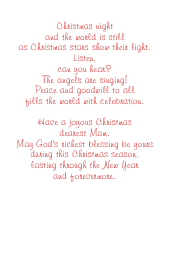 Christmas night
and the world is still
as Christmas stars show their light.
Listen,
can you hear?
The angels are singing!
Peace and goodwill to all
fills the world with celebration.
Have a joyous Christmas
dearest Mam.
May God's richest blessing be yours
during this Christmas season,
lasting through the New Year
and forevermore.